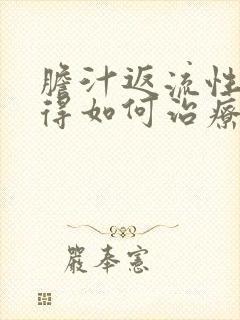 膽汁返流性
得如何治療
嚴奉憲